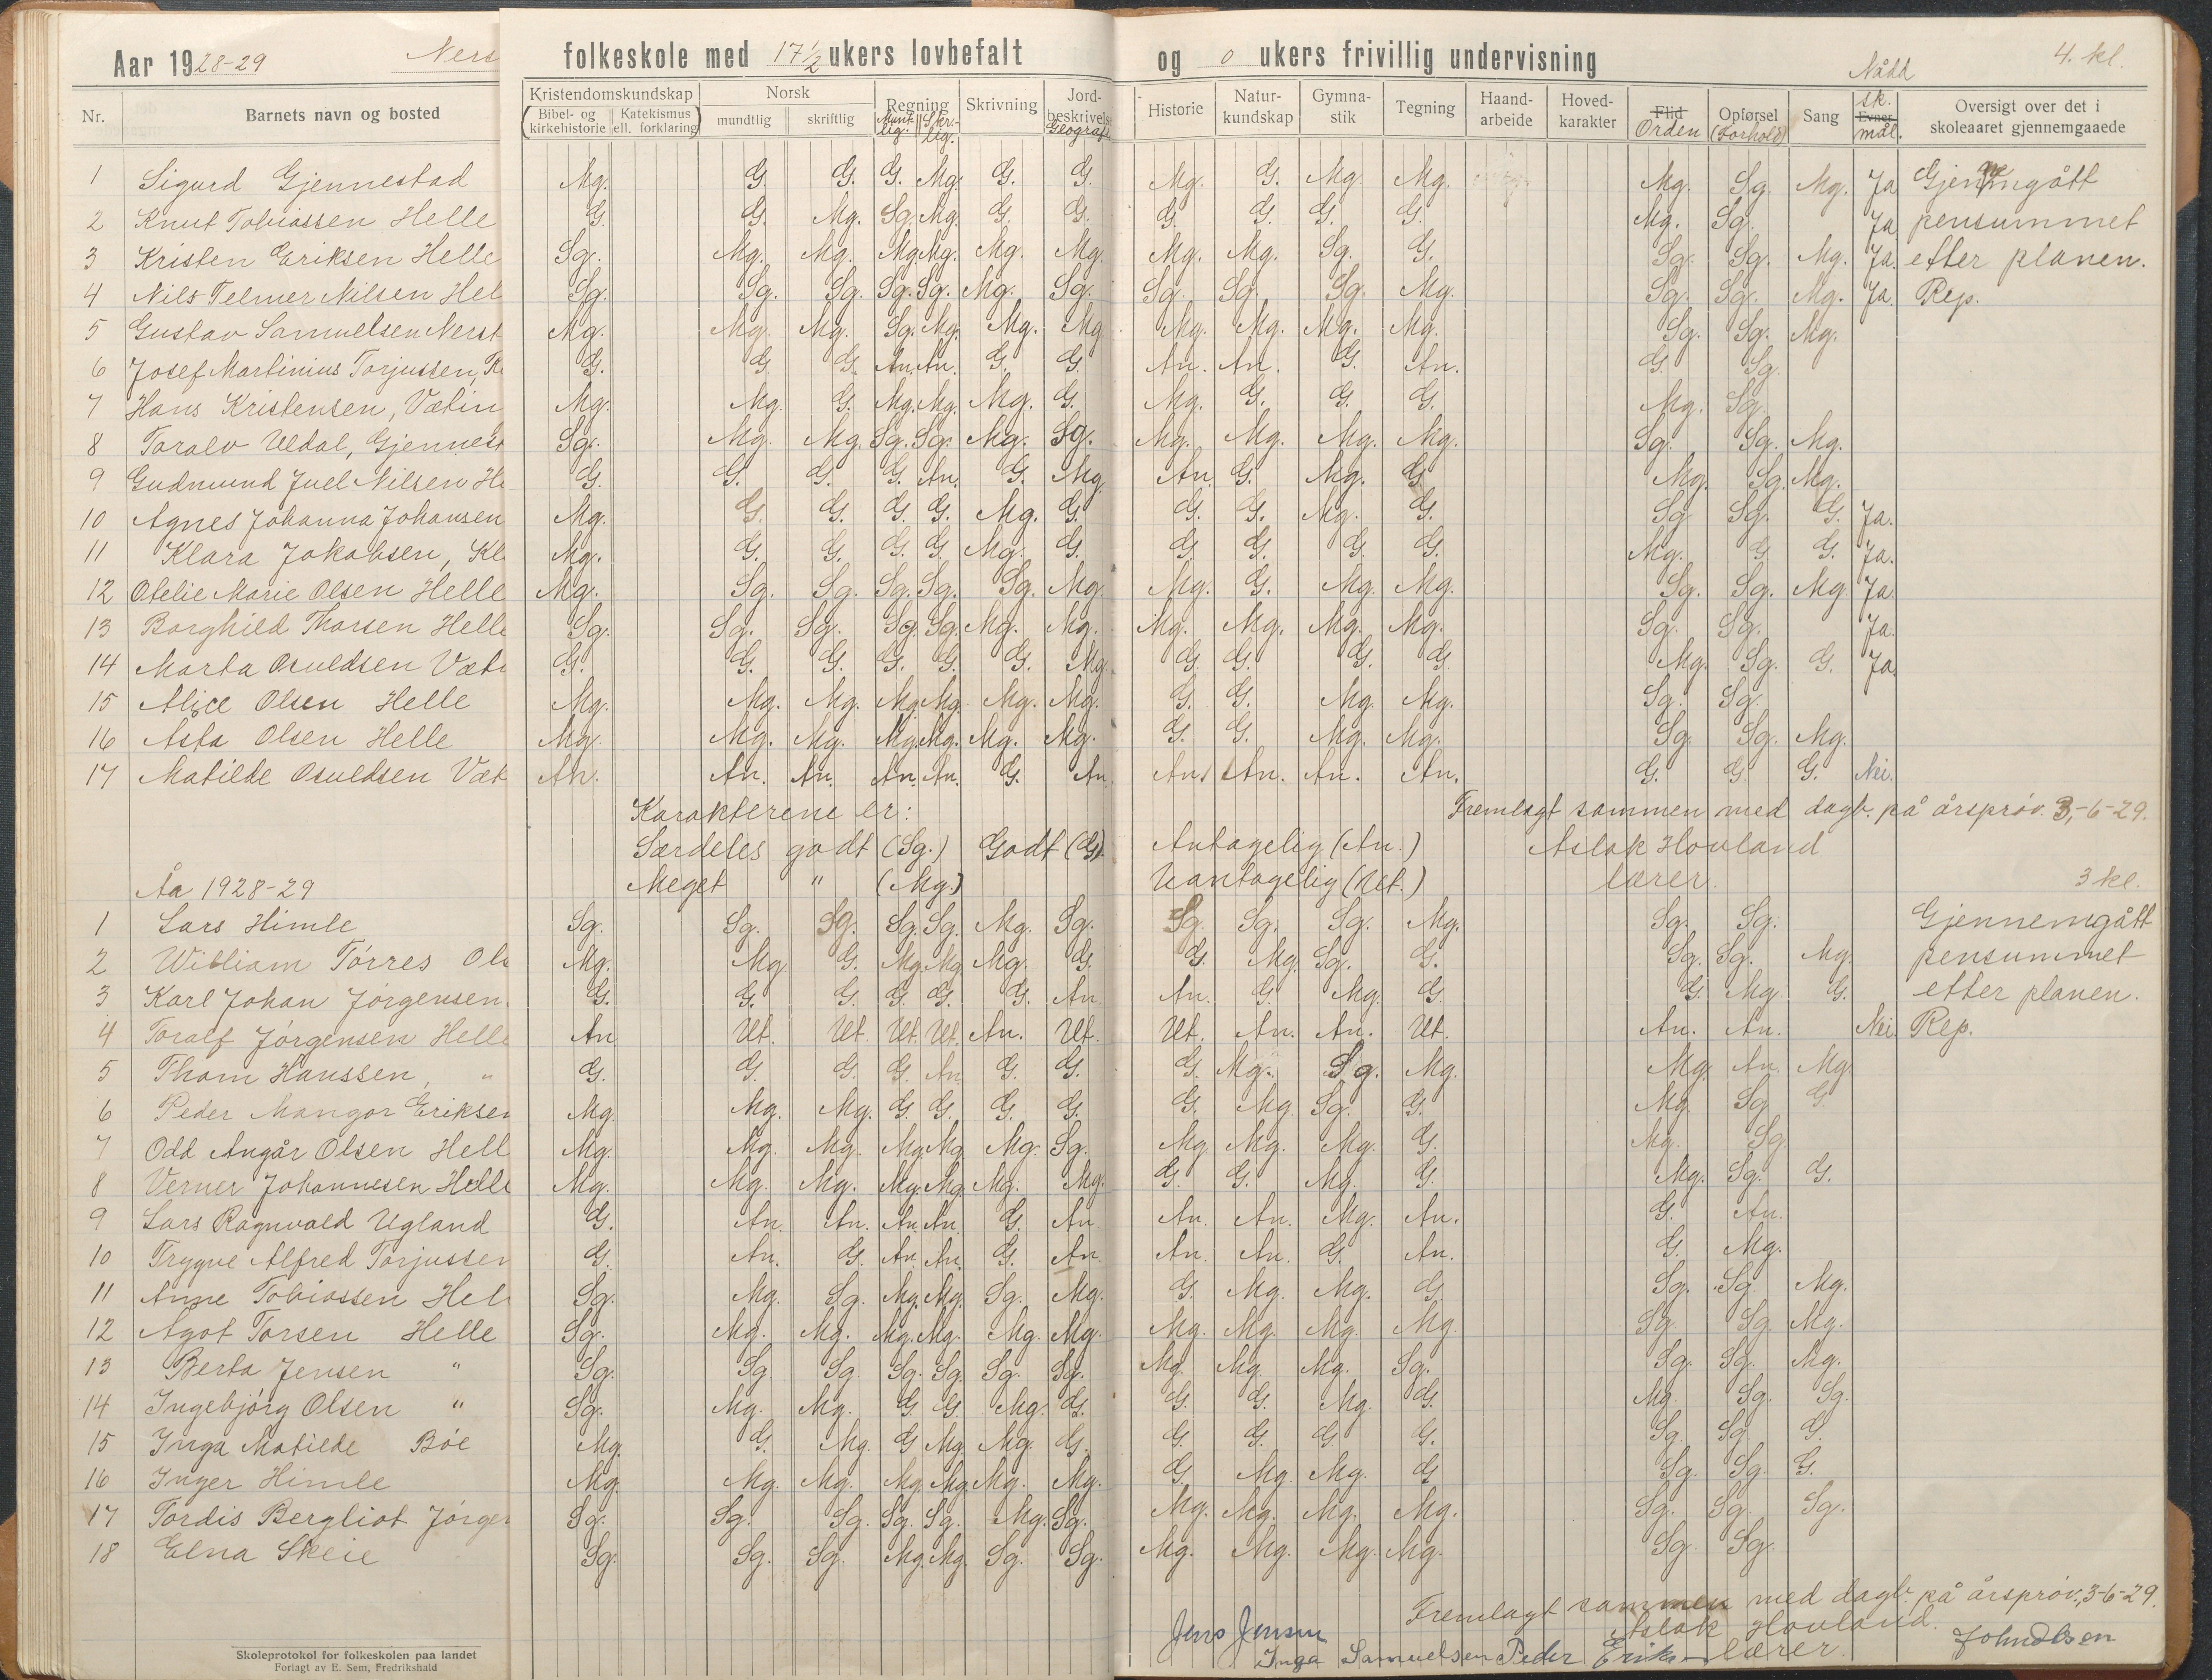 Aar 1928-29 Ners folkeskole med 17½ ukers lovbefalt og 0 ukers frivillig undervisning 4. kl.
Nr. Barnets navn og bosted Kristendomskundskap Bibel- og kirkehistorie Katekismus ell. forklaring Norsk mundtlig skriftlig Regning Munt-lig. Skri-lig. Skrivning Jord-beskrivelse Geografi Historie Natur-kundskap Gymna-stik Tegning Haand-arbeide Hoved-karakter Flid Orden Opførsel (Forhold) Sang Nådd sk. Evner mål. Oversigt over det i skoleaaret gjennemgaaede
1 Sigurd Gjennestad Mg. G. G. G. Mg. G. G. Mg. G. Mg. Mg. Mg. Sg. Mg. Ja Gjennemgått
2 Knut Tobiassen Helle G. G. Mg. Sg. Mg. G. G. G. G. G. G. Mg. Sg. Ja pensummet
3 Kristen Eriksen Helle Sg. Mg. Mg. Mg. Mg. Mg. Mg. Mg. Mg. Sg. G. Sg. Sg. Mg. Ja. efter planen.
4 Nils Telmer Nilsen Hel Sg. Sg. Sg. Sg. Sg. Mg. Sg. Sg. Sg. Sg. Mg. Sg. Sg. Mg. Ja. Rep.
5 Gustav Samuelsen Nerst Mg. Mg. Mg. Sg. Mg. Mg. Mg. Mg. Mg. Mg. Mg. Sg. Sg. Mg.
6 Josef Martinius Torjussen, R G. G. G. An. An. G. G. An. An. G. An. G. Sg.
7 Hans Kristensen, Vatin Mg. Mg. G. Mg. Mg. Mg. G. Mg. G. G. G. Mg. Sg.
8 Toralv Uldal, Gjennest Sg. Mg. Mg. Sg. Sg. Mg. Sg. Mg. Mg. Mg. Mg. Sg. Sg. Mg.
9 Gudmund Juel Nilsen He G. G. G. G. An. G. Mg. An. G. Mg. G. Mg. Sg. Mg.
10 Agnes Johanna Johansen Mg. G. G. G. G. Mg. G. G. G. Mg. G. Sg. Sg. G. Ja.
11 Klara Jakobsen, Kl Mg. G. G. G. G. Mg. G. G. G. G. G. Mg. G. G. Ja.
12 Otelie Marie Olsen Helle Mg. Sg. Sg. Sg. Sg. Sg. Mg. Mg. G. Mg. Mg. Sg. Sg. Mg. Ja.
13 Borghild Thorsen Helle Sg. Sg. Sg. Sg. Sg. Mg. Mg. Mg. Mg. Mg. Mg. Sg. Sg. Ja.
14 Marta Osuldsen Vat G. G. G. G. G. G. Mg. G. G. G. G. Mg. Sg. G. Ja
15 Alice Olsen Helle Mg. Mg. Mg. Mg. Mg. Mg. Mg. G. G. Mg. Mg. Sg. Sg.
16 Asta Olsen Helle Mg. Mg. Mg. Mg. Mg. Mg. Mg. G. G. Mg. Mg. Sg. Sg. Mg.
17 Matilde Osuldsen Vat An. An. An. An. An. G. An. An. An. An. An. G. G. G. Nei.
Karakterene er: Fremlagt sammen med dagb. på årsprøv. 3-6-29.
Særdeles godt (Sg.) Godt (G). Antagelig (An.) Aslak Hovland
Meget " (Mg.) Uantagelig (Ut.) lærer.
Åa 1928-29 3 kl.
1 Lars Himle Sg. Sg. Sg. Sg. Sg. Mg. Sg. Sg. Sg. Sg. Mg. Sg. Sg. Gjennemgått
2 William Tórres Ols Mg. Mg G. Mg. Mg Mg. G. G. Mg. Sg. G. Sg. Sg. Mg. pensummet
3 Karl Johan Jørgensen. G. G. G. G. G. G. An. An. G. Mg. G. G. Mg. G. efter planen.
4 Toralf Jørgensen Helle An Ut. Ut. Ut. Ut. An. Ut. Ut. An. An. Ut. An. An. Nei Rep.
5 Thom Hanssen, " G. G. G. G. An G. G. G. Mg. Sg. Mg. Mg. An. Mg.
6 Peder Mangor Eriksen Mg. Mg. Mg. G. G. G. G. G. Mg. Sg. G. Mg. Sg. G.
7 Odd Angår Olsen Hell Mg. Mg. Mg. Mg. Mg. Mg. Sg. Mg. Mg. Mg. G. Mg. Sg
8 Verner Johannesen Helle Mg. Mg. Mg. Mg. Mg. Mg. Mg. G. G. Mg. G. Mg. Sg. G.
9 Lars Ragnvald Ugland G. An. An. An. An. G. An An. An. Mg. An. G. An.
10 Trygve Alfred Torjussen G. An. G. An. An. G. An. An. An. G. An. G. Mg.
11 Anne Tobiassen Hel Sg. Mg. Sg. Mg. Mg. Sg. Mg. G. Mg. Mg. G. Sg. Sg. Mg.
12 Ágot Torsen Helle Sg. Mg. Mg. Mg. Mg. Mg. Mg. Mg. Mg. Mg. Mg. Sg. Sg. Mg.
13 Berta Jensen " Sg. Sg. Sg. Sg. Sg. Sg. Sg. Mg. Mg. Mg. Sg. Sg. Sg. Mg.
14 Ingebjørg Olsen " Sg. Mg. Mg. G. G. Mg. G. G. G. Mg. G. Mg. Sg. Sg.
15 Inga Matilde Bøe Mg. G. Mg. G Mg. Mg. G. G. G. G. G. Sg. Sg. G.
16 Inger Himle Mg. Mg. Mg. Mg. Mg. Mg. Mg. G. Mg. Mg. G. Sg. Sg. G.
17 Tordis Bergliot Jørgen Sg. Sg. Sg. Sg. Sg. Mg. Sg. Mg. Mg. Mg. Mg. Sg. Sg. Sg.
18 Elna Skeie Sg. Sg. Sg. Mg. Mg. Sg. Sg. Mg. Mg. Mg. Mg. Sg. Sg.
Fremlagt sammen med dagb. på årsprøv. 3-6-29.
Jens Jensen Aslak Hovland.
Inga Samuelsen Peder Eriksen lærer. Joh Olsen
Skoleprotokol for folkeskolen paa landet
Forlagt av E. Sem, Fredrikshald